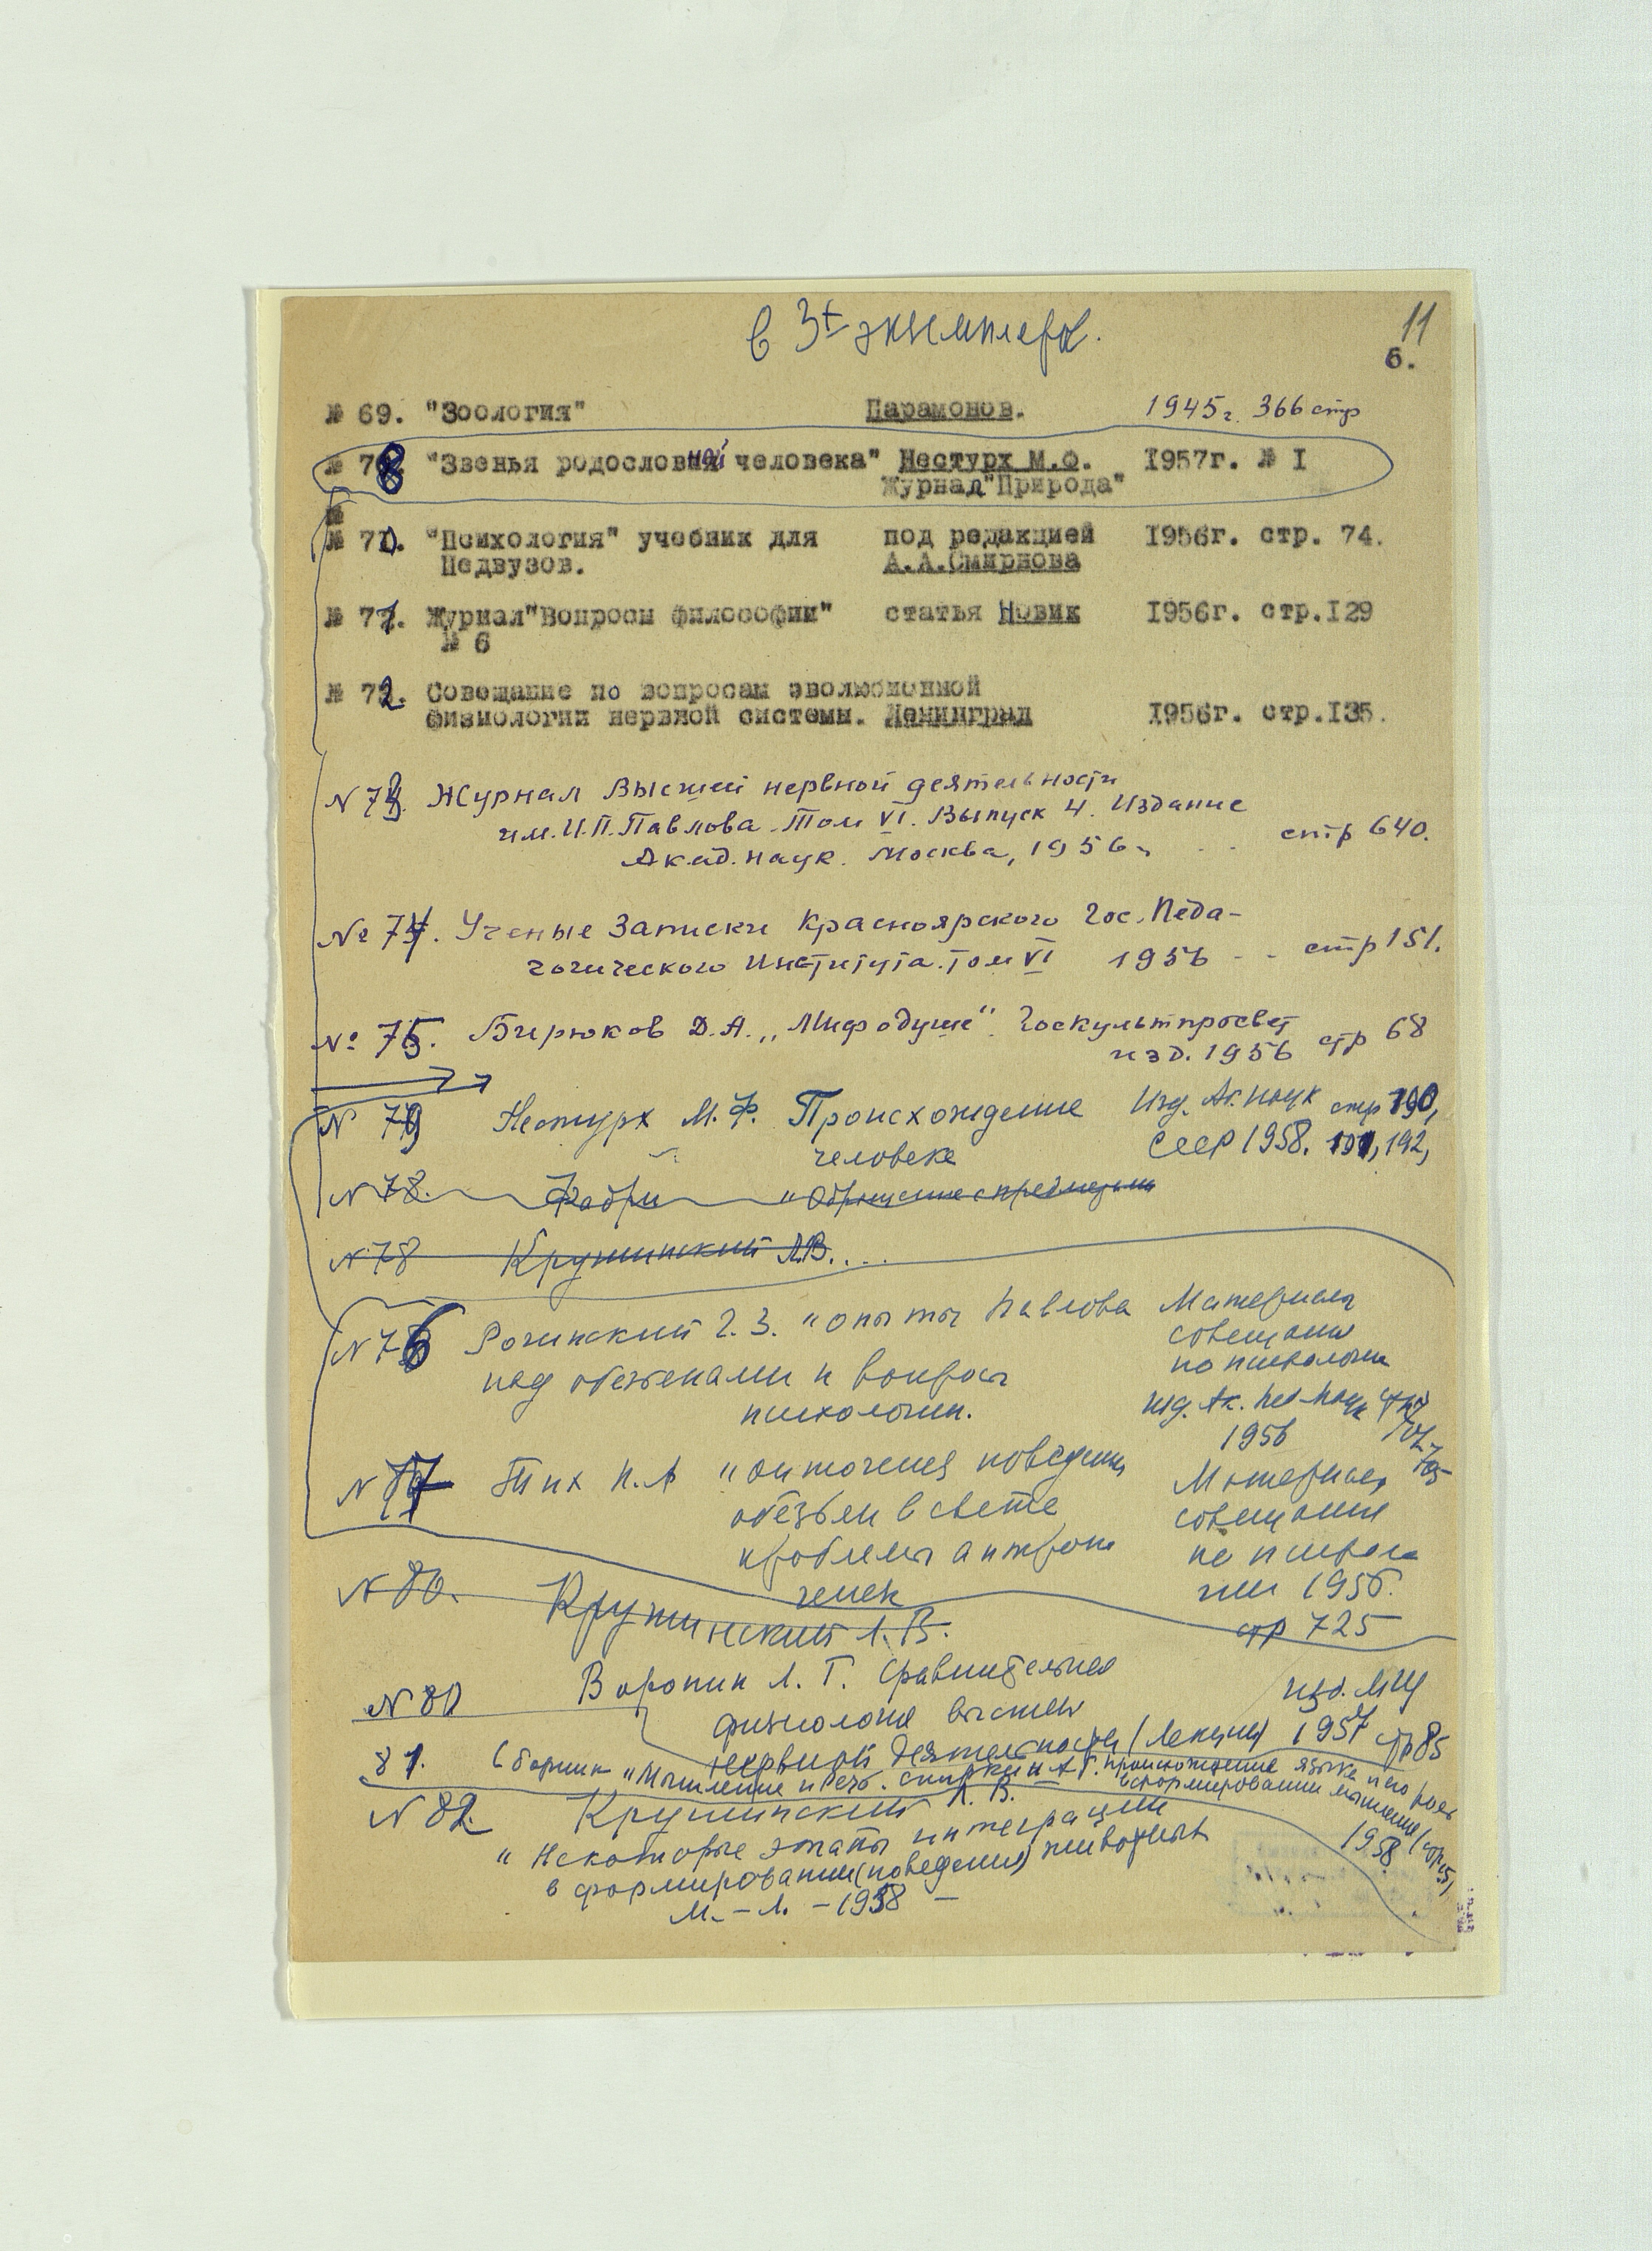 в 3х экземпляр.
11
6.
№ 69. "Зоология" Парамонов. 1945г. 366 стр
№ 78. "Звенья родословной человека" Нестурх М.Ф. 1957г. № 1
Журнал "Природа"
№
№ 70. "Психология" учебник для под редакцией 1956г. стр. 74.
Педвузов. А.А.Смирнова
№ 71. Журнал "Вопросы философии" статья Новик 1956г. стр.129
№ 6
№ 72. Совещание по вопросам эволюционной
физиологии нервной системы. Ленинград 1956г. стр.135.
N 73. Журнал Высшей нервной деятельности
им. И.П.Павлова. Том VI. Выпуск 4. Издание
Акад. наук. Москва, 1956г. стр 640.
№ 74. Ученые Записки Красноярского Гос. Педа-
гогического Института. Том VI 1956 - - стр 151.
№ 75. Бирюков Д.А. „Миф о душе". Госкультпросвет
изд. 1956 стр 68
N 79 Нестурх М.Ф. Происхождение Изд. Ак. Наук стр 190,
человека СССР 1958. 191, 192,
N 78. Фабри "Обращение с предметами
N 78 Крушинский Л.В. ...
N 76 Рогинский Г.З. "Опыты Павлова Материалы
совещания
над обезьянами и вопросы по психологии
психологии. изд. Ак. Пед Наук стр
1956 702
705
N 77 Тих Н.А "Онтогенез поведения Материалы
обезьян в свете совещания
проблемы антропо по психоло
генеза гии 1956.
стр 725
N 80. Крушинский Л.В.
N 80 Воронин Л.Г. Сравнительная изд. МГУ
физиология высшей
нервной деятельности (Лекции) 1957 стр 85
81. Сборник "Мышление и речь. Спиркин А.Г. происхождение языка и его роль
в формировании мышления (стр 51,
1958
N 82. Крушинский Л.В.
"Некоторые этапы интеграции
в формировании (поведения) животных
М. - Л. - 1958 -